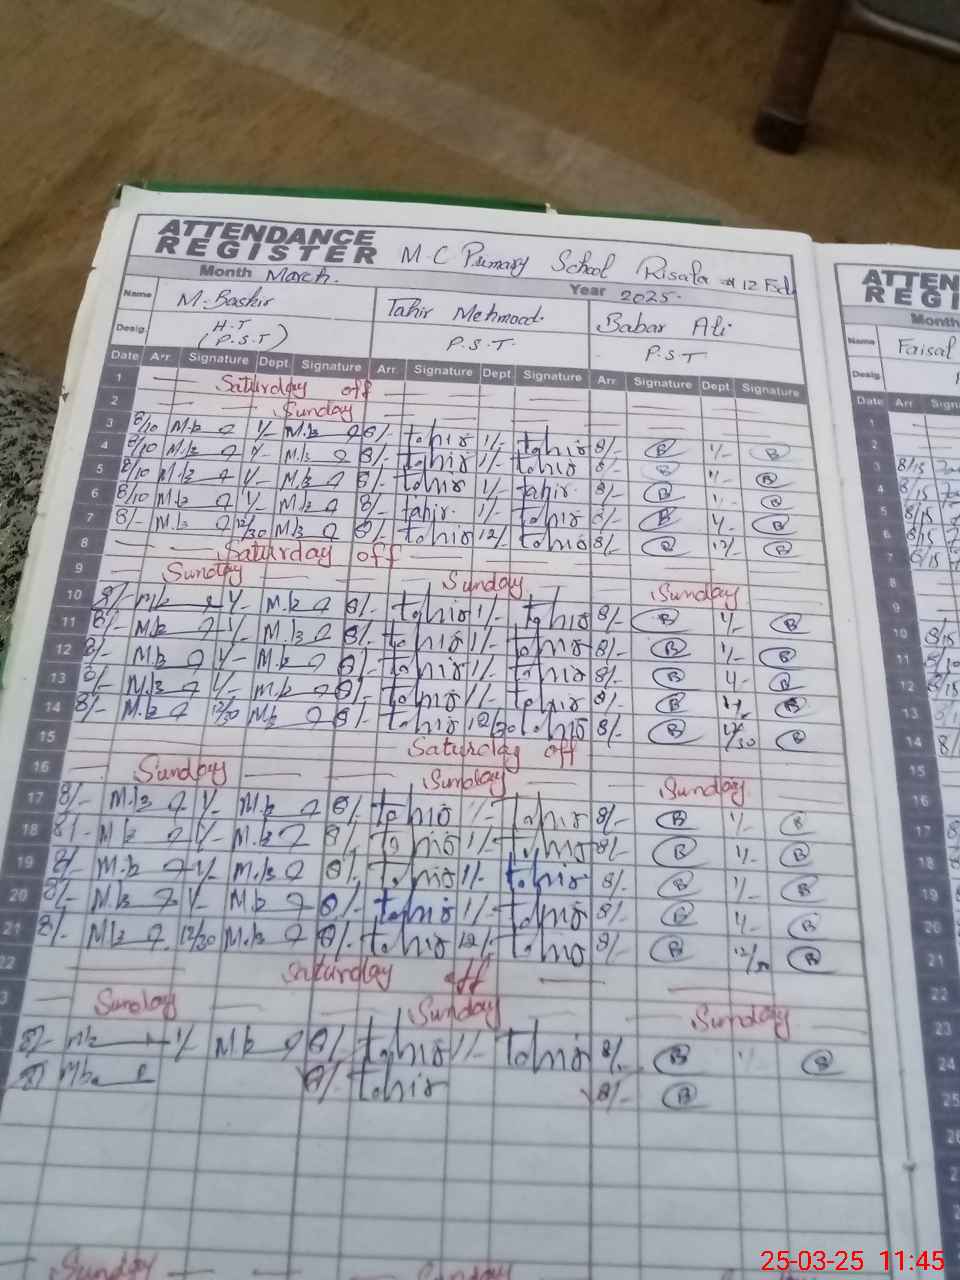 ATTENDANCE
REGISTER M.C Primary School Risala # 12 Fcd
Month March. Year 2025.
Name M. Bashir Tahir Mehmood. Babar Ali
Desig. H.T (P.S.T) P.S.T. P.S.T
Date Arr. Signature Dept. Signature Arr. Signature Dept. Signature Arr. Signature Dept. Signature
1 Saturday off
2 Sunday
3 8/10 M.B 1/- M.B 8/- tahir 1/- tahir 8/- B 1/- B
4 8/10 M.B 1/- M.B 8/- tahir 1/- tahir 8/- B 1/- B
5 8/10 M.B 1/- M.B 8/- tahir 1/- tahir 8/- B 1/- B
6 8/10 M.B 1/- M.B 8/- tahir 1/- tahir 8/- B 1/- B
7 8/- M.B 12/30 M.B 8/- tahir 12/- tahir 8/- B 12/- B
8 Saturday off
9 Sunday Sunday Sunday
10 8/- M.B 1/- M.B 8/- tahir 1/- tahir 8/- B 1/- B
11 8/- M.B 1/- M.B 8/- tahir 1/- tahir 8/- B 1/- B
12 8/- M.B 1/- M.B 8/- tahir 1/- tahir 8/- B 1/- B
13 8/- M.B 1/- M.B 8/- tahir 1/- tahir 8/- B 1/- B
14 8/- M.B 12/30 M.B 8/- tahir 12/30 tahir 8/- B 12/30 B
15 Saturday off
16 Sunday Sunday Sunday
17 8/- M.B 1/- M.B 8/- tahir 1/- tahir 8/- B 1/- B
18 8/- M.B 1/- M.B 8/- tahir 1/- tahir 8/- B 1/- B
19 8/- M.B 1/- M.B 8/- tahir 1/- tahir 8/- B 1/- B
20 8/- M.B 1/- M.B 8/- tahir 1/- tahir 8/- B 1/- B
21 8/- M.B 12/30 M.B 8/- tahir 12/- tahir 8/- B 12/30 B
22 Saturday off
3 Sunday Sunday Sunday
8/- M.B 1/- M.B 8/- tahir 1/- tahir 8/- B 1/- B
8/ M.B 8/- tahir 8/- B
Sunday Sunday
ATTEN
REGI
Month
Name Faisal
Desig.
Date Arr Sign
1
2
3 8/15
4 8/15
5 8/15
6 8/15
7 8/15
8
9
10 8/15
11 8/10
12 8/15
13
14 8/
15
16
17
18
19
20
21
22
23
24
25
26
25-03-25 11:45